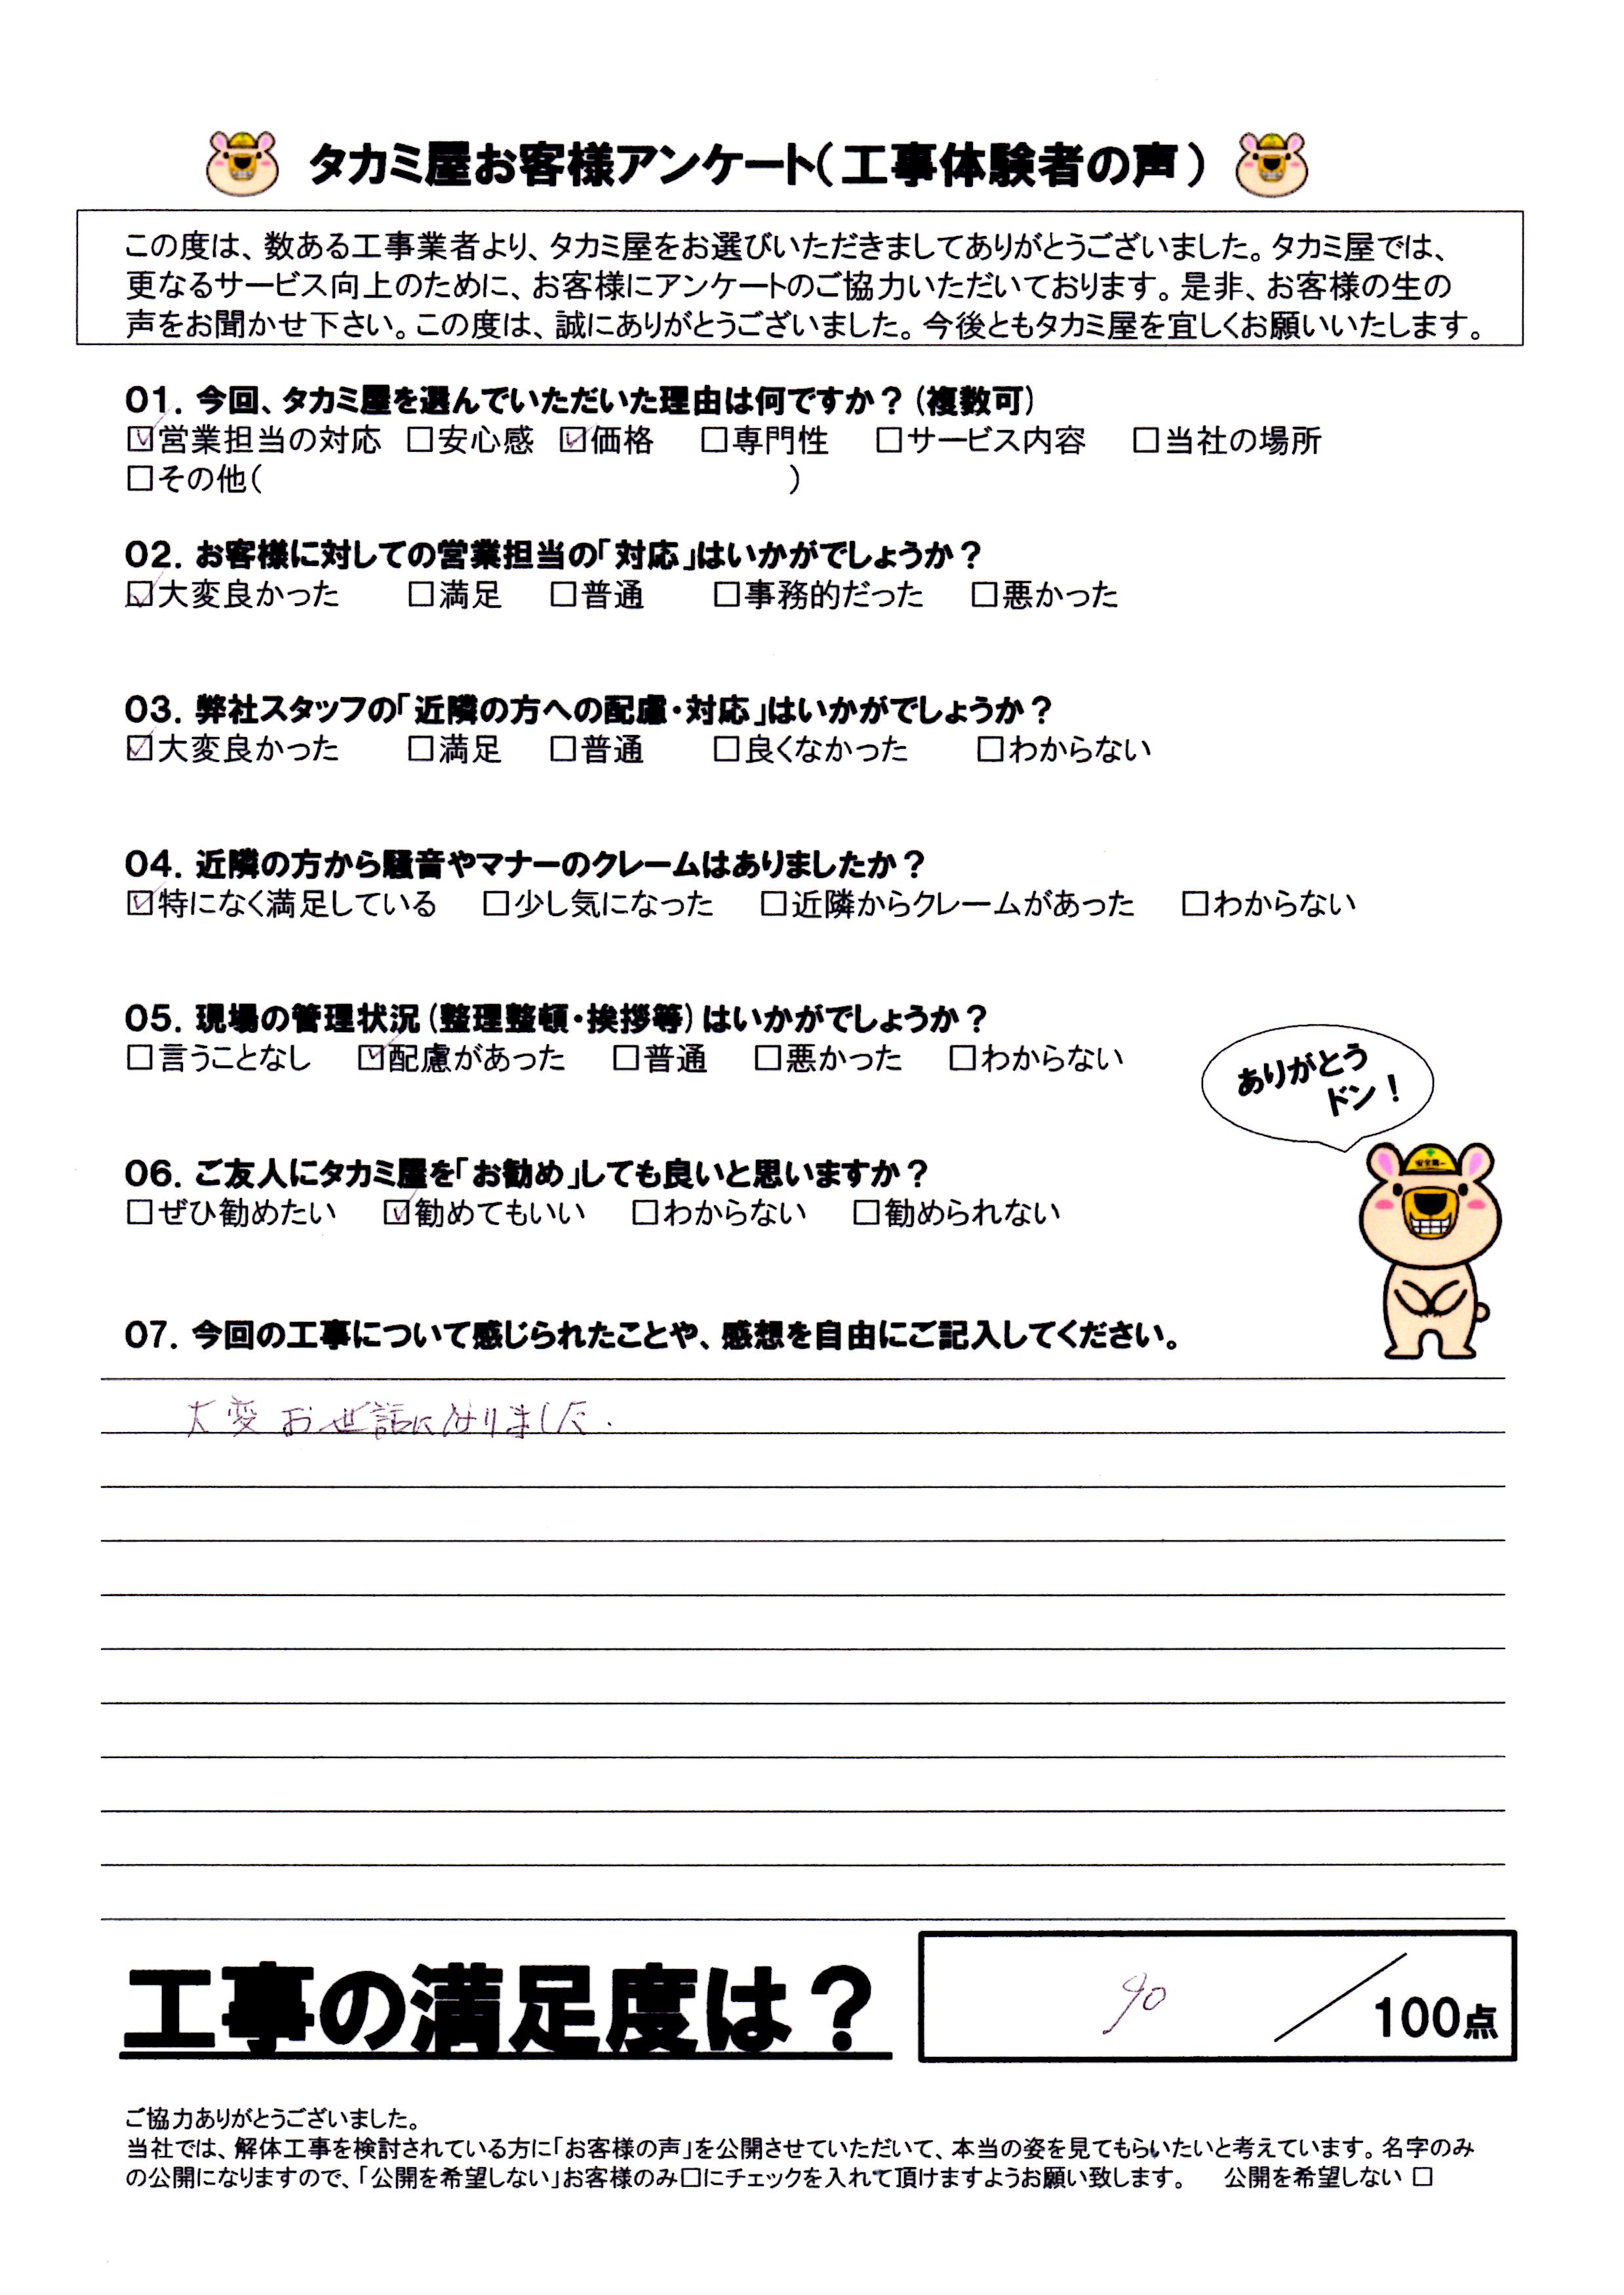 タカミ屋お客様アンケート(工事体験者の声)
この度は、数ある工事業者より、タカミ屋をお選びいただきましてありがとうございました。タカミ屋では、
更なるサービス向上のために、お客様にアンケートのご協力いただいております。是非、お客様の生の
声をお聞かせ下さい。この度は、誠にありがとうございました。今後ともタカミ屋を宜しくお願いいたします。
01. 今回、タカミ屋を選んでいただいた理由は何ですか?(複数可)
☑営業担当の対応 □安心感 ☑価格 □専門性 □サービス内容 □当社の場所
□その他( )
02. お客様に対しての営業担当の「対応」はいかがでしょうか?
☑大変良かった □満足 □普通 □事務的だった □悪かった
03. 弊社スタッフの「近隣の方への配慮・対応」はいかがでしょうか?
☑大変良かった □満足 □普通 □良くなかった □わからない
04. 近隣の方から騒音やマナーのクレームはありましたか?
☑特になく満足している □少し気になった □近隣からクレームがあった □わからない
05. 現場の管理状況(整理整頓・挨拶等)はいかがでしょうか?
□言うことなし ☑配慮があった □普通 □悪かった □わからない
ありがとう
ドン!
06. ご友人にタカミ屋を「お勧め」しても良いと思いますか?
□ぜひ勧めたい ☑勧めてもいい □わからない □勧められない
安全第一
07. 今回の工事について感じられたことや、感想を自由にご記入してください。
大変お世話になりました.
工事の満足度は? 90 / 100点
ご協力ありがとうございました。
当社では、解体工事を検討されている方に「お客様の声」を公開させていただいて、本当の姿を見てもらいたいと考えています。名字のみ
の公開になりますので、「公開を希望しない」お客様のみ□にチェックを入れて頂けますようお願い致します。 公開を希望しない □